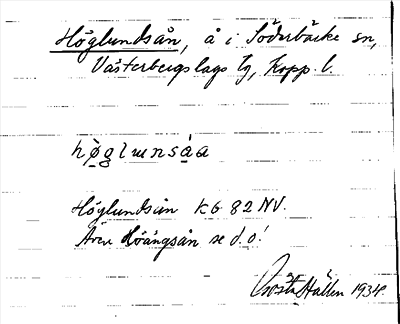 Höglundsån, å i Söderbärke sn,
Västerbergslags tg, Kopp. l.
høglunsåa
Höglundsån K6 82 NV.
Även Höängsån se d.o!
Gösta Hallen 1934